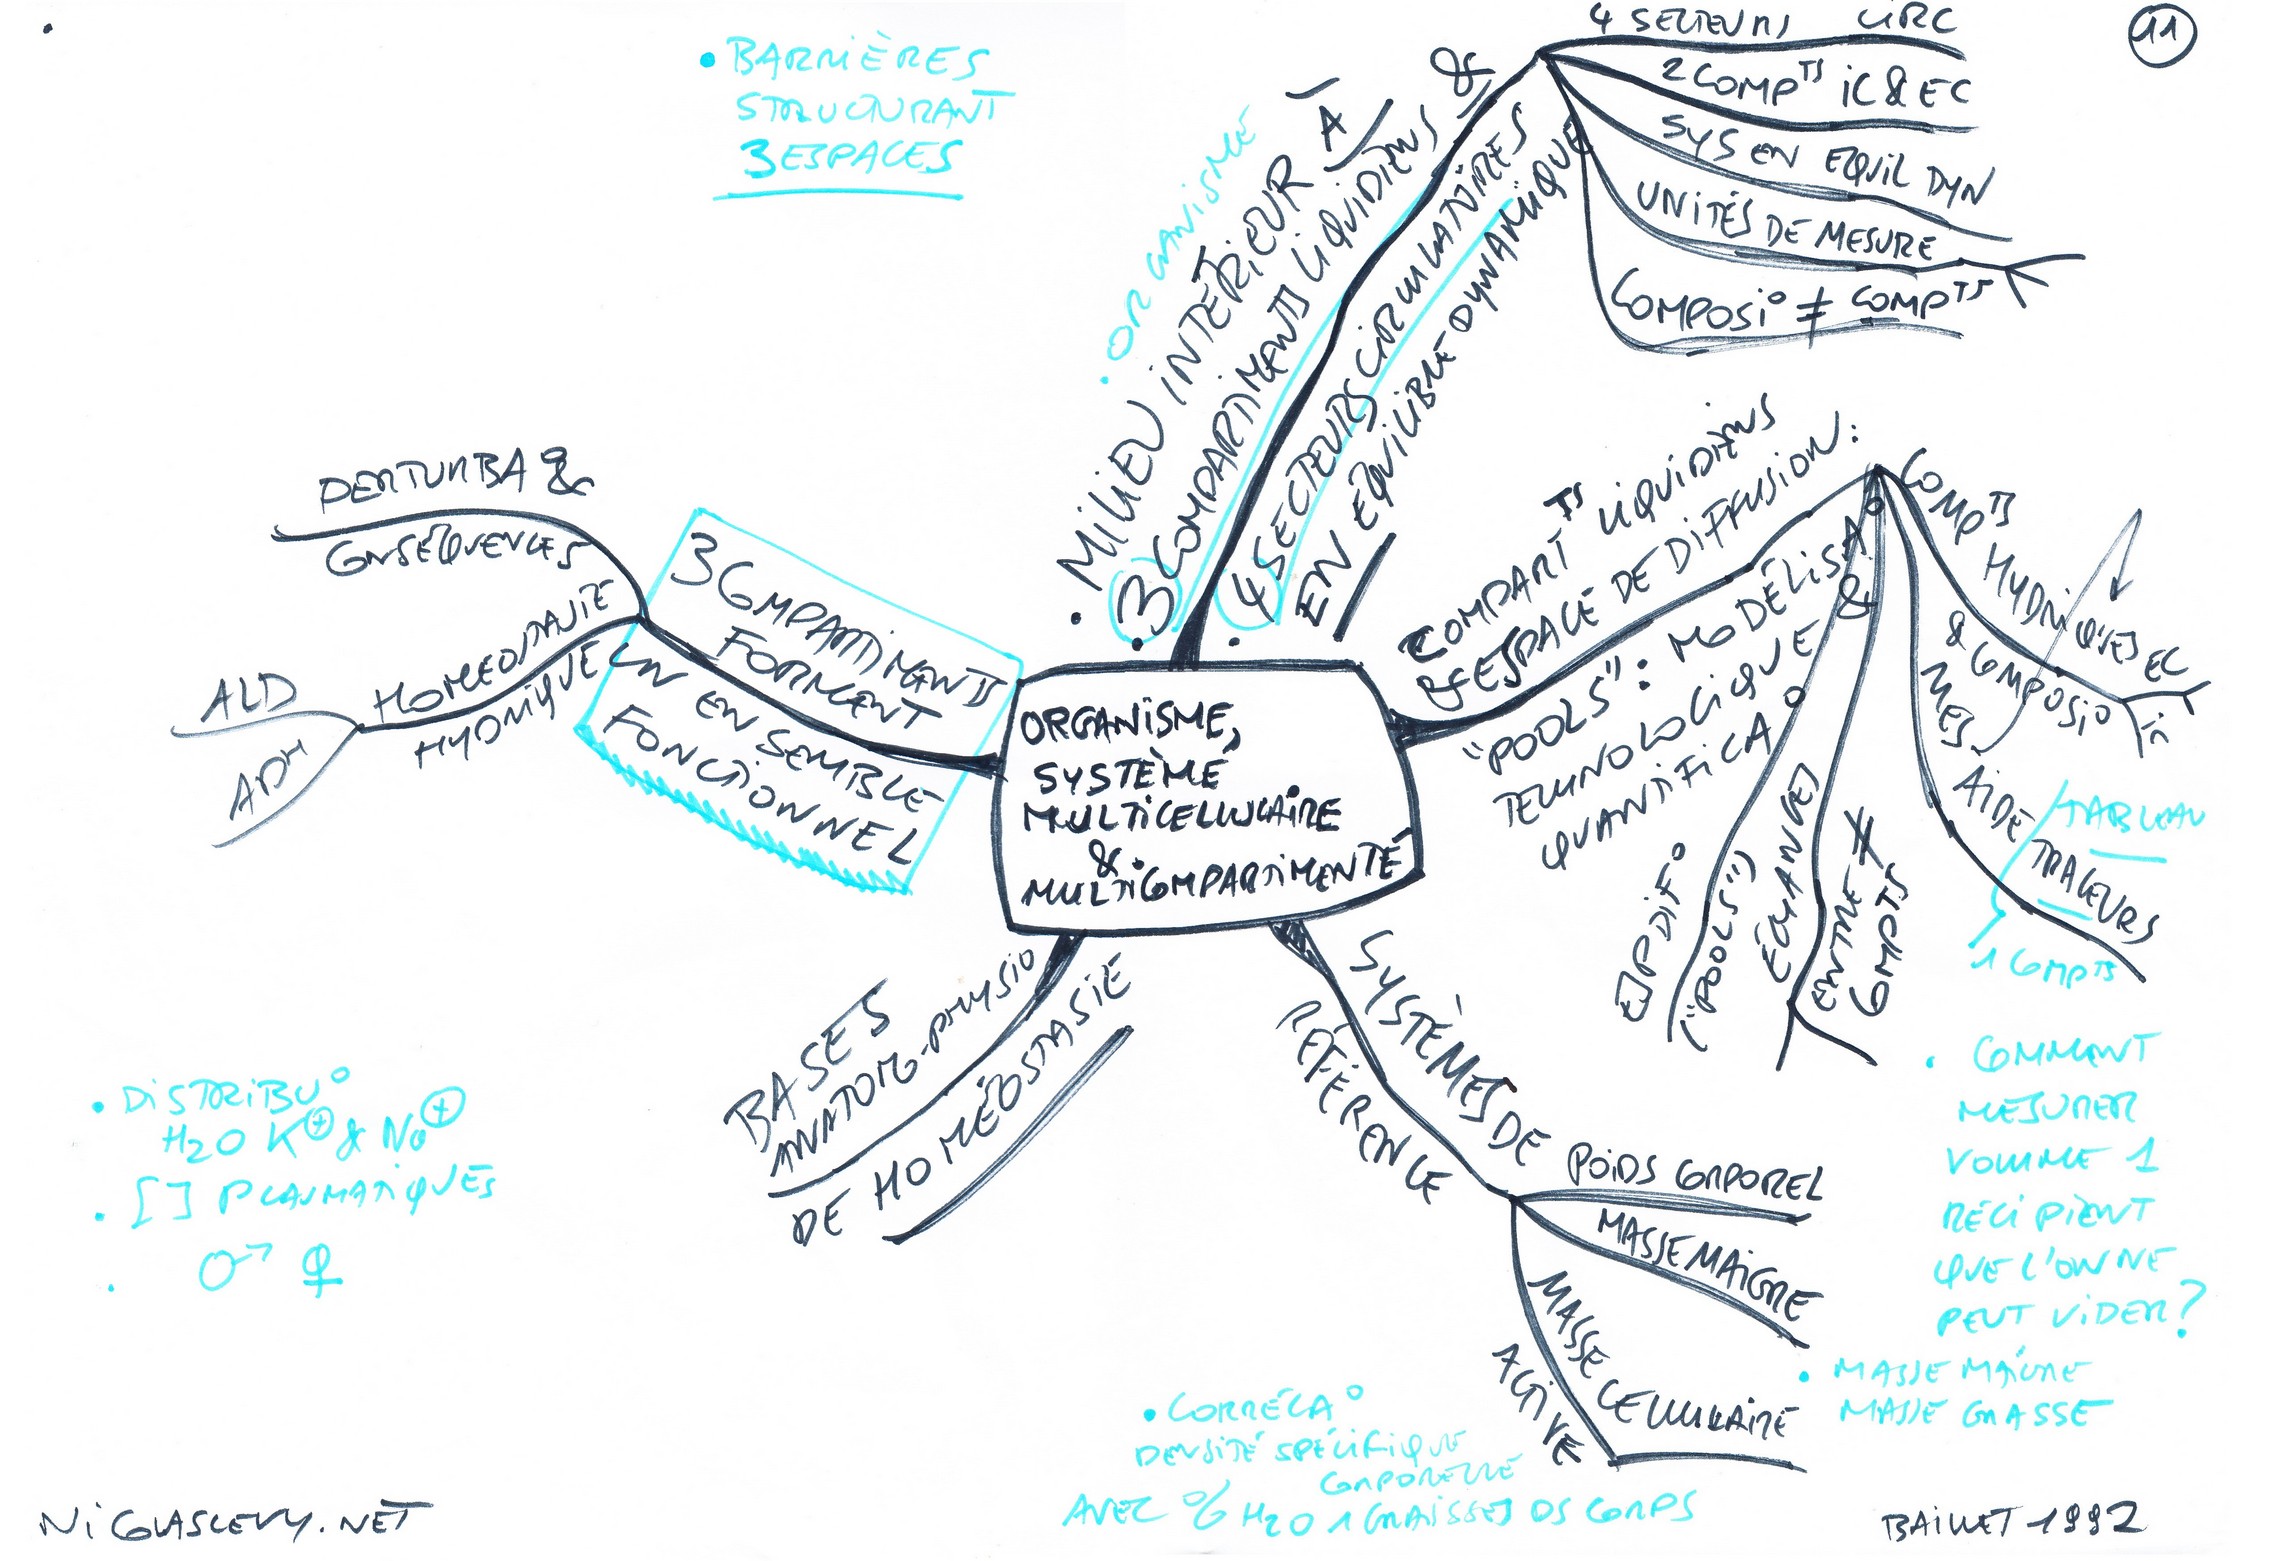 11
• BARRIÈRES
STRUCTURANT
3 ESPACES
• ORGANISME
• MILIEU INTÉRIEUR À
• 3 COMPARTIMENTS LIQUIDIENS &
• 4 SECTEURS CIRCULATOIRES
EN EQUILIBRE DYNAMIQUE
4 SECTEURS CIRC
2 COMPTS iC & EC
SYS EN EQUIL DYN
UNITÉS DE MESURE
COMPOSI° ≠ COMPTS
COMPARTTS LIQUIDIENS
& ESPACE DE DIFFUSION :
"POOLS" : MODÉLISA° &
TECHNOLOGIQUE
QUANTIFICA°
COMPTS HYDRIQUES EC
& COMPOSI° iC
MES.
AIDE TRACEURS
TABLEAU
1 COMPTS
ESPDIF°
("POOLS")
ÉCHANGES
ENTRE ≠
COMPTS
ORGANISME,
SYSTÈME
MULTICELLULAIRE
&
MULTICOMPARTIMENTÉ
3 COMPARTIMENTS
FORMENT
UN ENSEMBLE
FONCTIONNEL
PERTURBA &
CONSÉQUENCES
HOMEOSTASIE
HYDRIQUE
ALD
ADH
BASES
ANATOMO-PHYSIO
DE HOMÉOSTASIE
SYSTÈMES DE
RÉFÉRENCE
POIDS CORPOREL
MASSE MAIGRE
MASSE CELLULAIRE
ACTIVE
• COMMENT
MESURER
VOLUME 1
RÉCIPIENT
QUE L'ON NE
PEUT VIDER ?
• MASSE MAIGRE
MASSE GRASSE
• DISTRIBU°
H2O K+ & Na+
• [ ] PLASMATIQUES
• ♂ ♀
• CORRÉLA°
DENSITÉ SPÉCIFIQUE
CORPORELLE
AVEC % H2O 1 GRAISSES DS CORPS
NICOLASLEVY.NET
BAILLET 1992